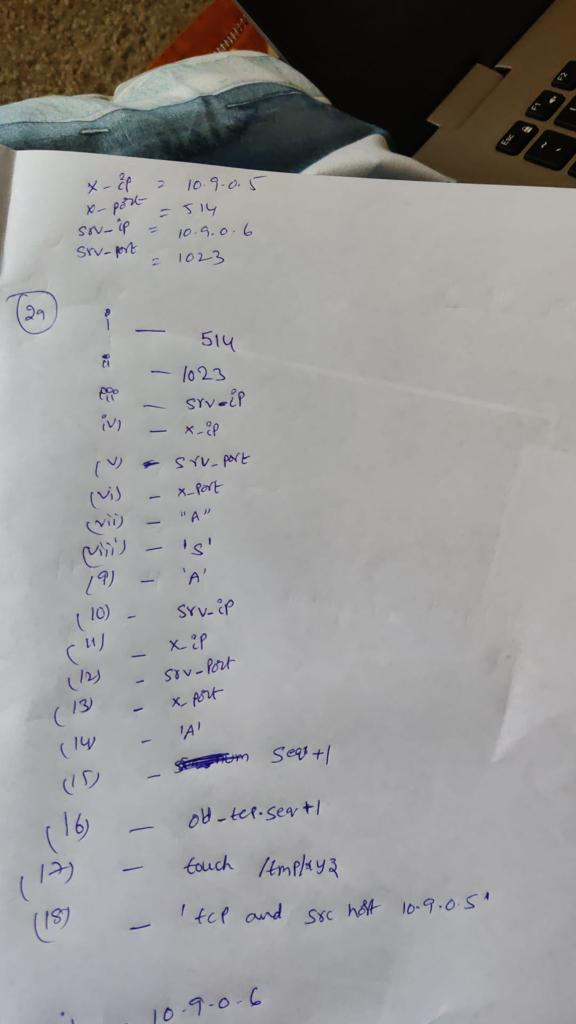 x-ip = 10.9.0.5
x-port = 514
srv-ip = 10.9.0.6
srv-port = 1023
2a
i — 514
ii — 1023
iii — srv-ip
iv) — x-ip
(v) - srv-port
(vi) - x-port
(vii) - "A"
(viii) - 'S'
(9) - 'A'
(10) - srv-ip
(11) - x-ip
(12) - srv-port
(13) - x-port
(14) - 'A'
(15) - seq+1
(16) — old-tcp.seq+1
(17) — touch /tmp/xyz
(18) — 'tcp and src host 10.9.0.5'
10.9.0.6
Esc
F1
F2